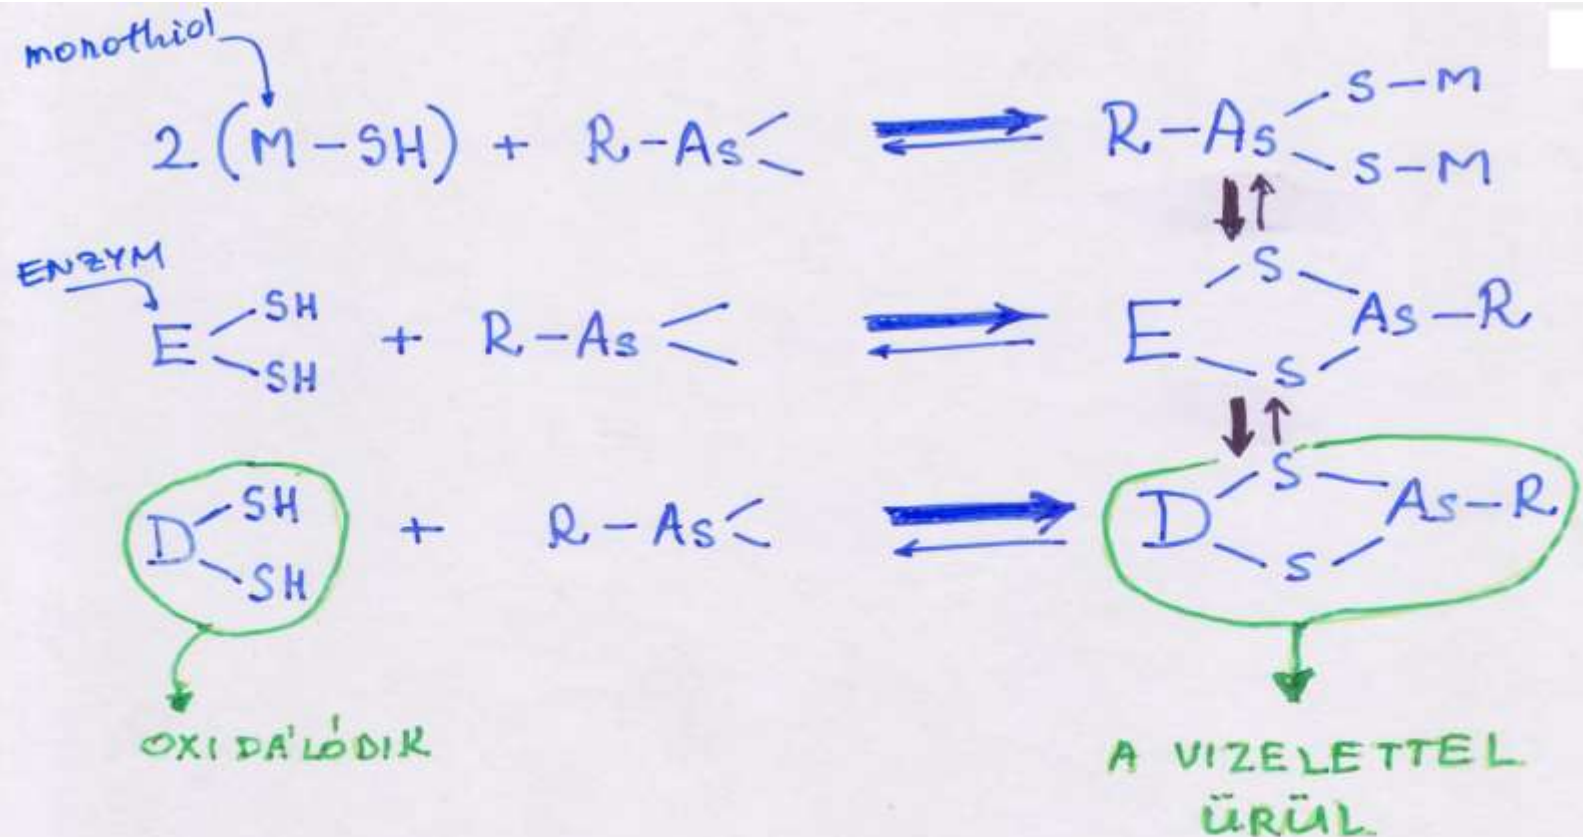 monothiol
2 (M-SH) + R-As< ⇌ R-As
S-M
S-M
ENZYM
E
SH
SH
+ R-As< ⇌ E
S
S
As-R
D
SH
SH
+ R-As< ⇌ D
S
S
As-R
OXIDÁLÓDIK
A VIZELETTEL
ÜRÜL